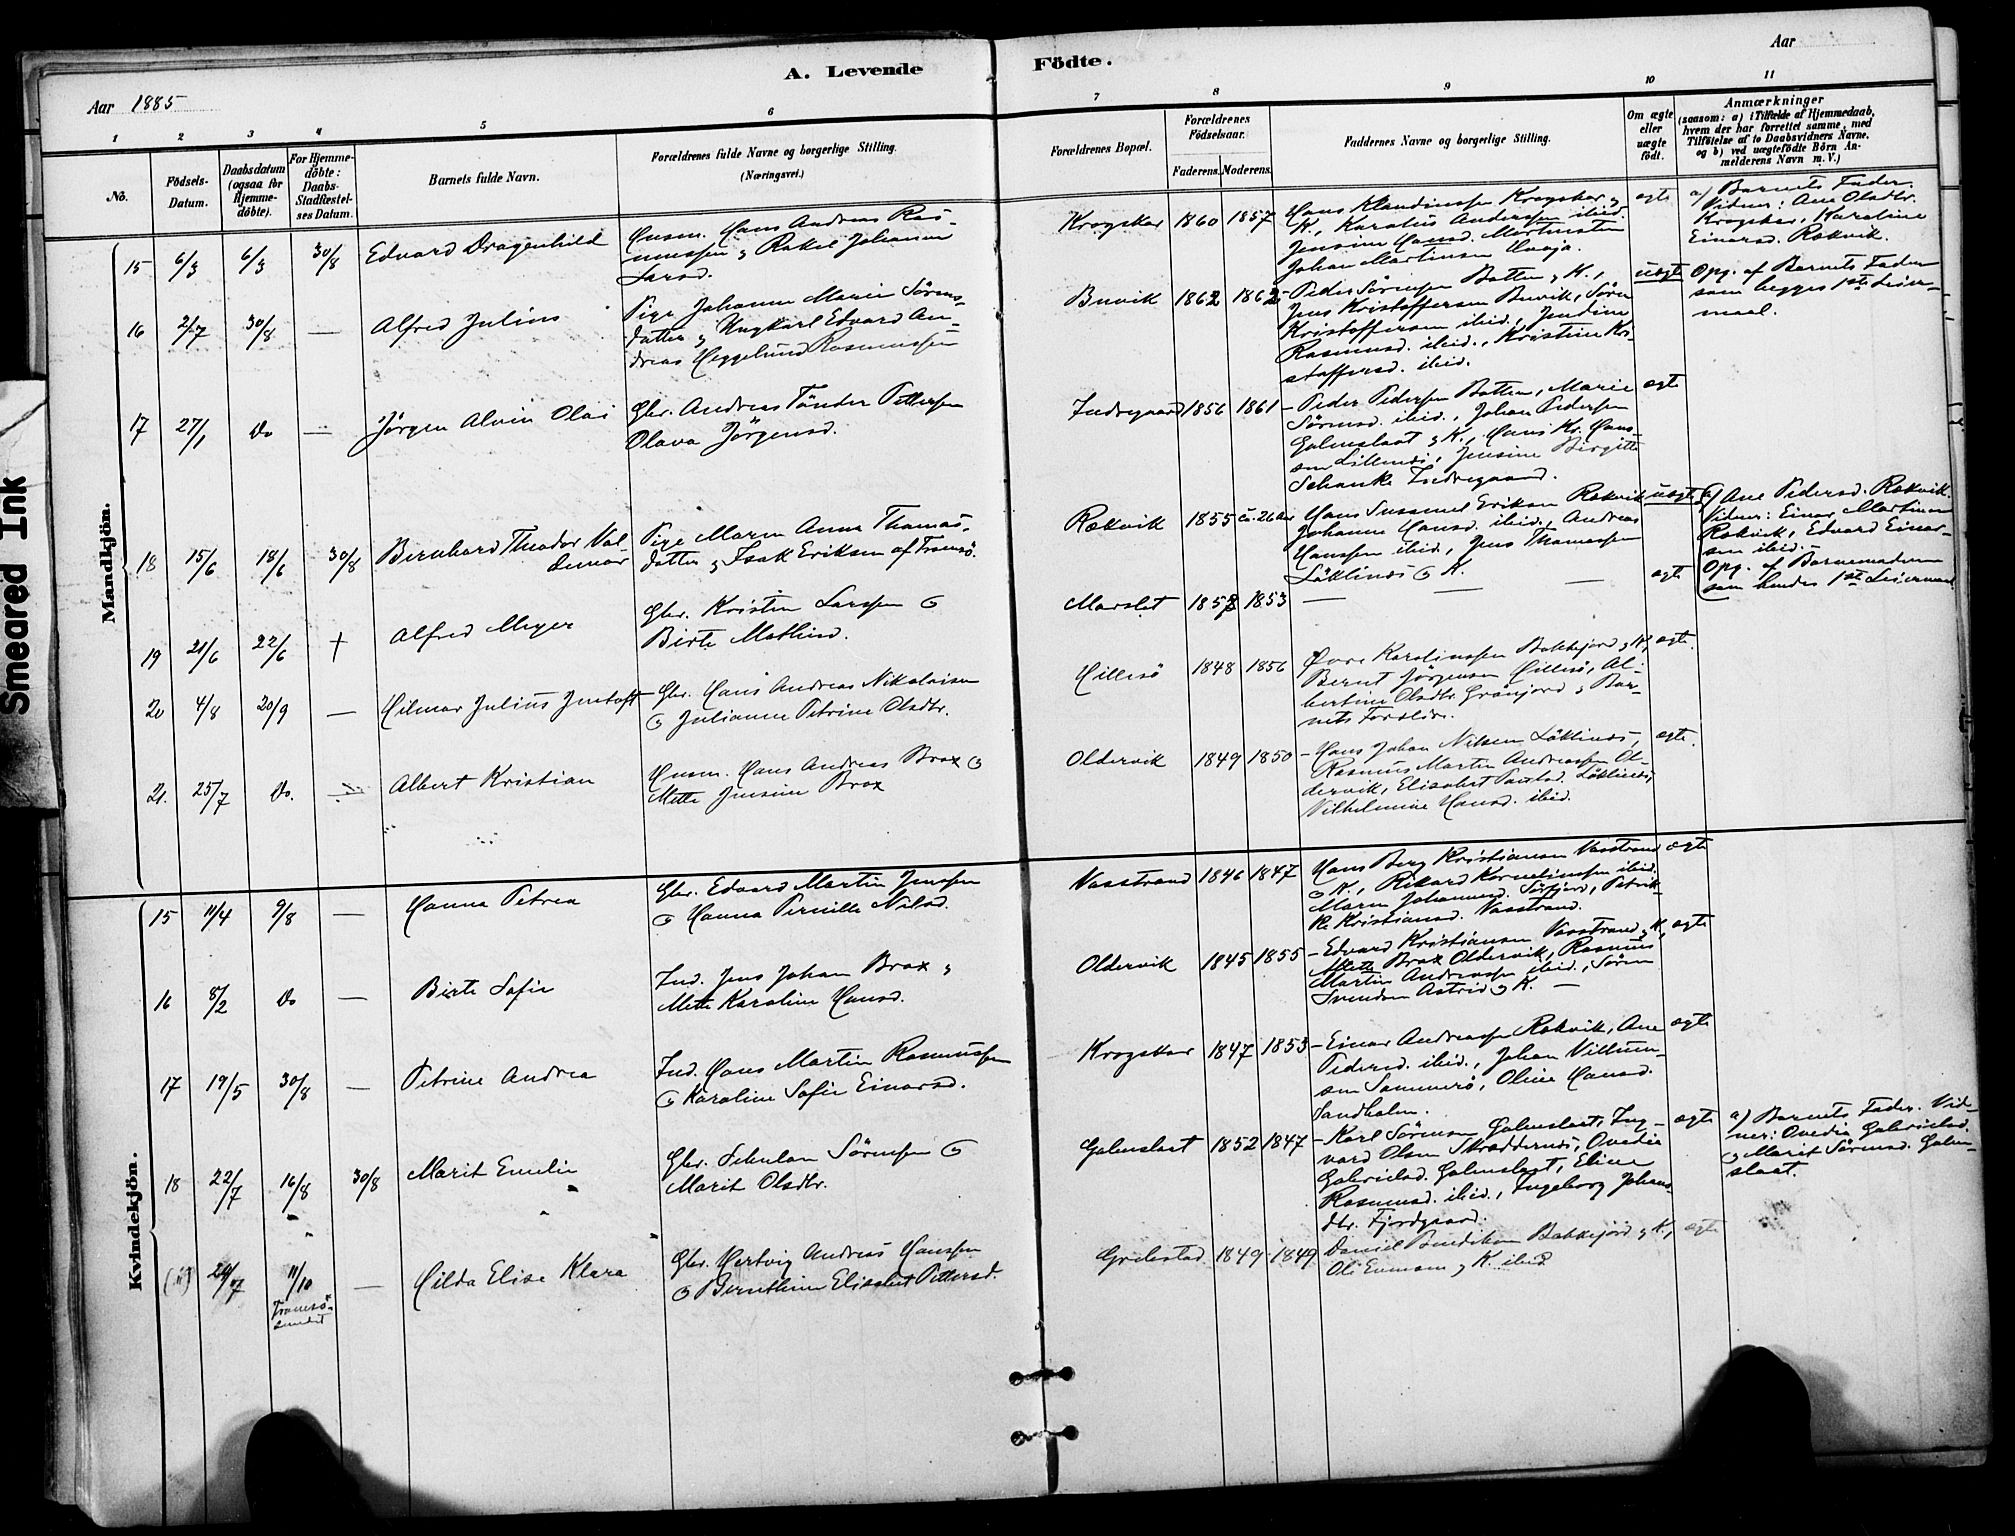 A. Levende
Födte.
Aar
Aar 1885
1 2 3 4 5 6
7 8 9 10 11
No.
Födsels-
Datum.
Daabsdatum
(ogsaa for
Hjemme-
döbte).
For Hjemme-
döbte:
Daabs-
Stadfæstel-
ses Datum.
Barnets fulde Navn.
Forældrenes fulde Navne og borgerlige Stilling.
(Næringsvei.)
Forældrenes Bopæl.
Forældrenes
Födselsaar.
Faderens. Moderens.
Faddernes Navne og borgerlige Stilling.
Om ægte
eller
uægte
født.
Anmærkninger
(saasom: a) i Tilfælde af Hjemmedaab,
hvem der har forrettet samme, med
Tilföielse af to Daabsvidners Navne,
og b) ved uægtefödte Börn An-
melderens Navn m. V.)
Smeared Ink
Mandkjön.
15 6/3 6/3 30/8 Edvard Dragenhild
Husm. Hans Andreas Ras-
mussen & Rakel Johanna
Larsd.
Krogskar 1860 1857
Hans Klaudiussen Krogskar &
K., Karolus Anderssen ibid.
Jensine Hansd. Mortensten
Johan Martinsen
ægte
a) Barnets Fader.
Vidner: Ane Olsdtr.
Krogskar, Karoline
Einarsd. Rækvik.
16 2/7 30/8 — Alfred Julius
Pige Johanna Marie Sörens-
datter & Ungkarl Edvard An-
dreas Heggelund Rasmussen
Buvik 1862 1862
— Peder Sörensen Botten & K.,
Jens Kristoffersen Buvik, Sören
Kristoffersen ibid., Jendine
Rasmusd. ibid., Kristine Kri-
stoffersd. ibid.
uægte
Opg. af Barnets Fader
som begges 1ste Leier-
maal.
17 27/1 Do — Jörgen Alvin Olai
Gbr. Andreas Tönder Pettersen
Olava Jörgensd.
Indregaard 1856 1861
— Peder Pedersen Botten, Marie
Sörensd. ibid., Johan Pedersen
Galmslaat & K., Hans Kr. Hans-
sen Lillenæs, Jensine Birgitte
Schanke Indregaard.
ægte
18 15/6 18/6 30/8 Bernhard Theodor Val-
demar
Pige Maren Anna Thomas-
datter & Isak Eriksen af Tromsö.
Rækvik 1855 ca. 26 Aar
Hans Susamel Eriksen Rækvik
Johanna Hansd. ibid., Andreas
Hanssen ibid., Jens Thomassen
Löklinæs & K.
uægte
a) Ane Pedersd. Rækvik.
Vidner: Einar Martinsen
Rækvik, Edvard Einar-
sen ibid.
Opg. af Barnemoderen
som hendes 1ste Leiermaal
19 21/6 22/6 † Alfred Meyer
Gbr. Kristen Larssen &
Birte Mathisd.
Marslet 1858 1853 — — —
ægte
20 4/8 20/9 — Hilmar Julius Jentoft
Gbr. Hans Andreas Nikolaisen
& Julianna Petrine Olsdtr.
Hillesö 1848 1856
Øvre Karolinssen Bakkejord & K,
Bernt Jörgensen Hillesö, Al-
bertine Olsdtr. Grönfjord & Bar-
nets Foreldre.
ægte
21. 25/7 Do. — Albert Kristian
Husm. Hans Andreas Brox &
Mette Jensine Brox
Oldervik 1849 1850
— Hans Johan Nilsen Löklinæs,
Rasmus Martin Andreassen Ol-
dervik, Elisabet Paulsd. Löklinæs,
Vilhelmine Hansd. ibid.
ægte.
Kvindekjön.
15 11/4 9/8 — Hanna Petrea
Gbr. Edvard Martin Jenssen
& Hanna Pernille Nilsd.
Vasstrand 1846 1847
Hans Berg Kristiansen Vasstrand
& K., Rikard Kornelinssen ibid.
Maren Johannesd. Sörfjord, Petrik-
ke Kristiansd. Vasstrand.
ægte
16 8/2 Do — Birte Sofie
Ind. Jens Johan Brox &
Mette Karoline Hansd.
Oldervik 1845 1855
— Edvard Kristiansen Vasstrand & K,
Mette Brox Oldervik, Rasmus
Martin Andreassen ibid., Sören
Svendsen Astrid & K. —
ægte
17 19/5 30/8 — Petrine Andrea
Ind. Hans Martin Rasmussen
& Karoline Sofie Einarsd.
Krogskar 1847 1853
— Einar Andreassen Rækvik, Ane
Pedersd. ibid., Johan Villum-
sen Sommerö, Oline Hansd.
Sandholm.
ægte
18 22/7 16/8 30/8 Marit Emelie
Gbr. Schulan Sörensen &
Marit Olsdtr.
Galmslaat 1852 1847
— Karl Sörensen Galmslaat, Ing-
vard Olsen Skræddernæs, Ovedia
Gabrielsd. Galmslaat, Eline
Rasmusd. ibid., Ingeborg Johans-
dtr. Fjordgaard.
ægte
a) Barnets Fader. Vid-
ner: Ovedia Gabrielsd.
& Marit Sörensd. Galm-
slaat.
24/7 11/10 — Hilda Elise Klara
Tromsö-
sundet
Gbr. Hertvig Andreas Hanssen
& Bernthine Elisabet Pettersd.
Grelestad 1849 1849
Daniel Bendiksen Bakkejord & K,
Ole Evensen & K. ibid
ægte